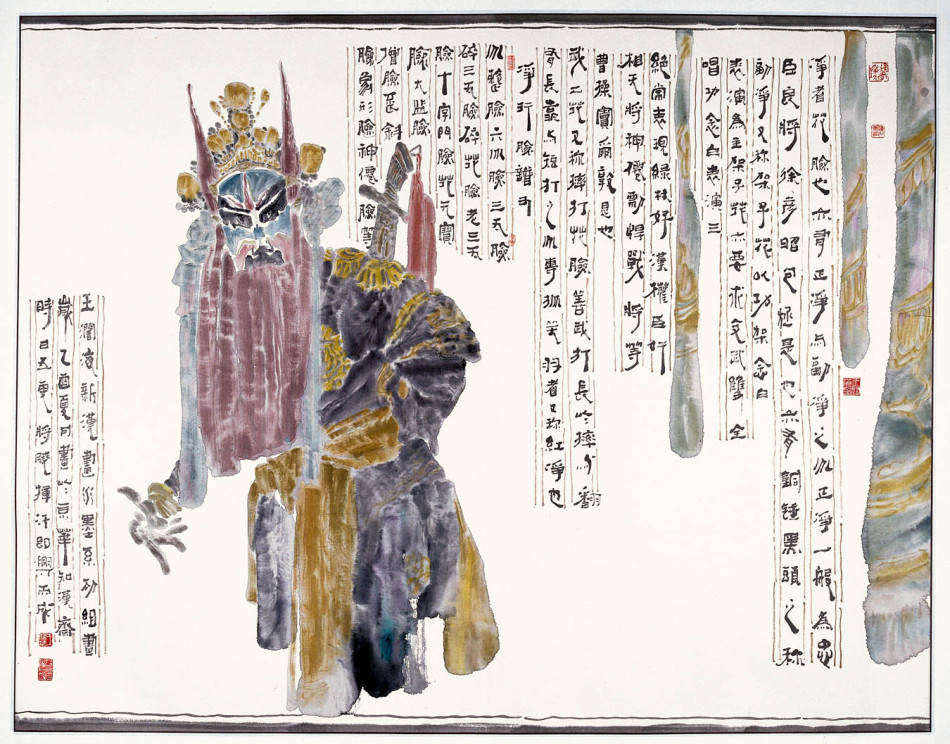 淨者花臉也亦有正淨与副淨之从正淨一般為忠
臣良將徐彥昭包極是也亦有銅錘黑頭之称
副淨又称架子花以功架念白
表演為主架子花亦要求文武雙全
唱功念白表演三
絕常表現綠林好漢權臣奸
相天將神僊剽悍戰將等
曹操竇爾敦是也
武二花又称摔打花臉善武打長於摔
有長靠与短打之从
又称紅淨也
淨行臉譜乃
从整臉六从臉三瓦臉
碎三瓦臉碎花臉老三瓦
臉十字門臉花元寶
臉太監臉
僧臉歪斜
臉象形臉神僊臉等
王瀾海新漢畫
組畫
歲乙酉夏月畫於京華知漢齋
時日五更將曉揮汗即興而成